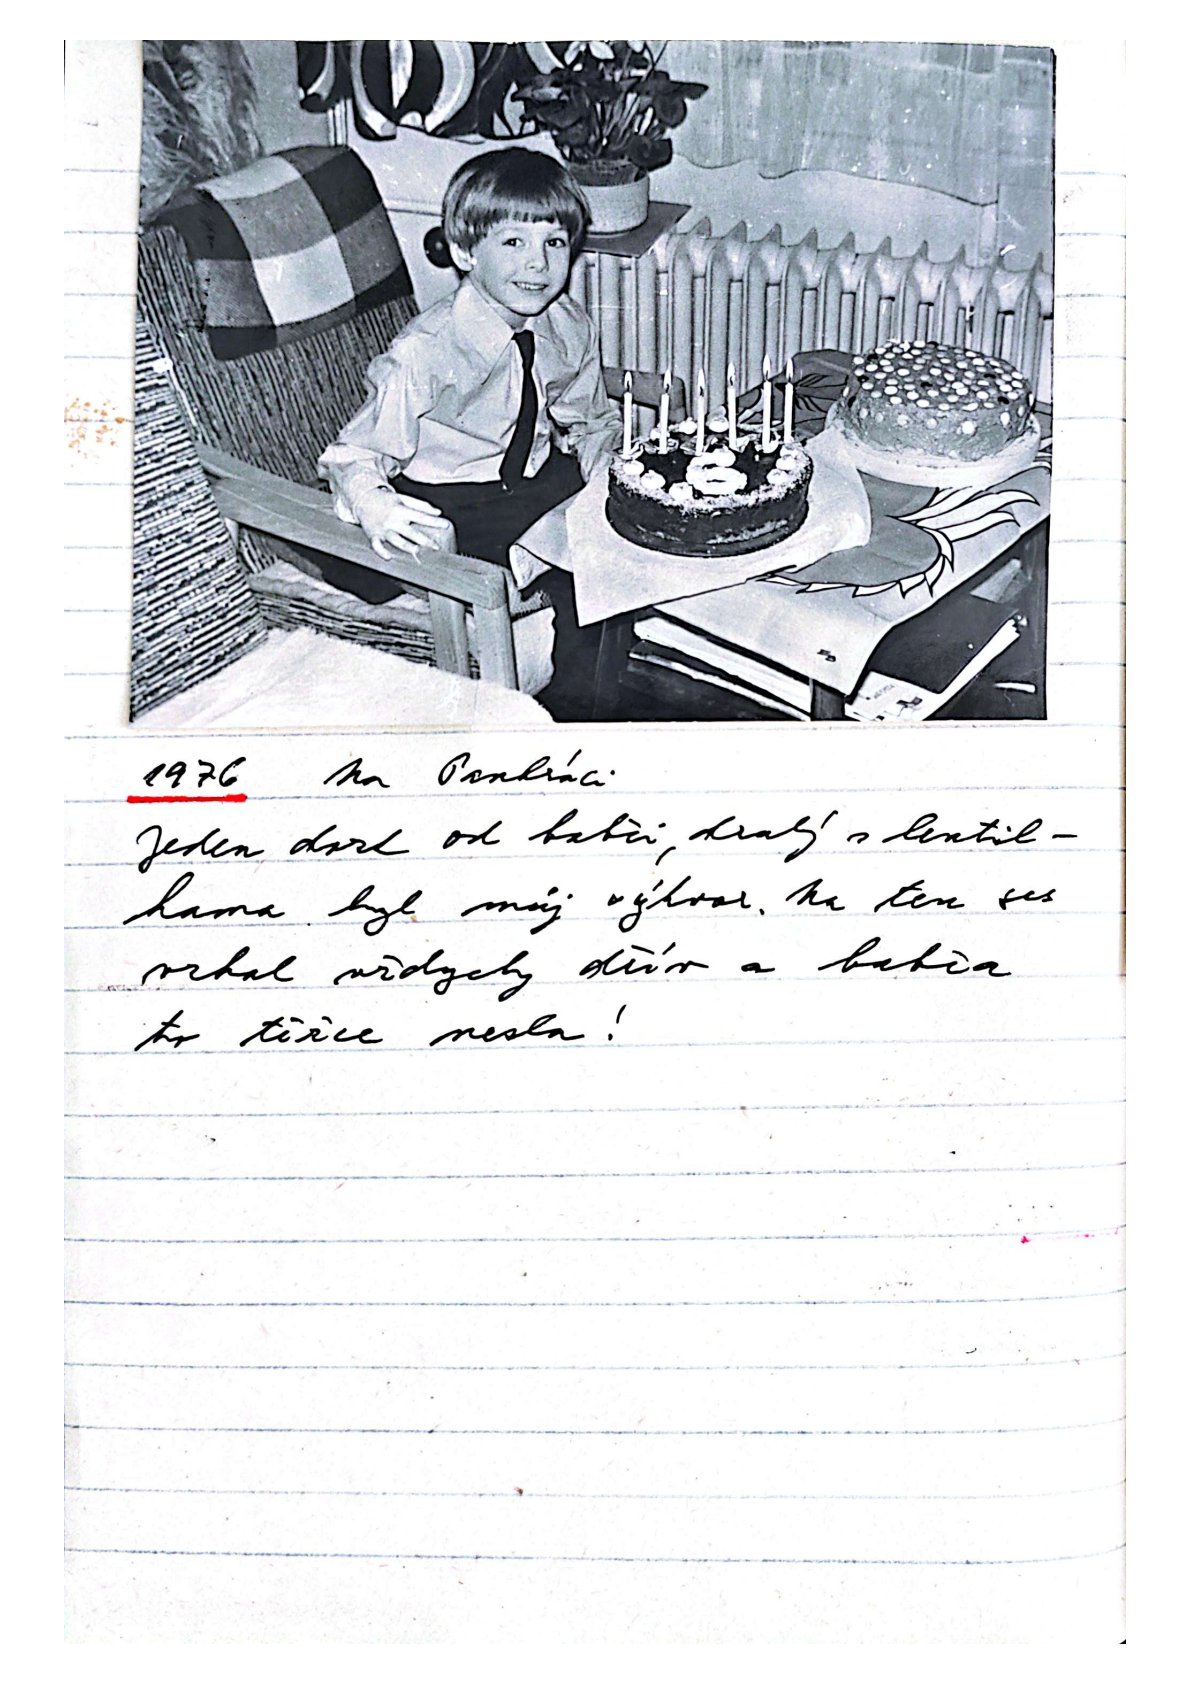 1976 Na Pankráci
Jeden dort od babči, druhý s lentil-
kama byl můj výtvor. Na ten ses
vrhal vždycky dřív a babča
to těžce nesla!